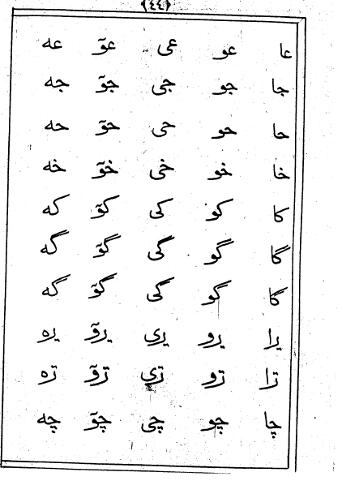 ﴿٤٤﴾
عا عو عی عوٓ عه
جا جو جی جوٓ جه
حا حو حی حوٓ حه
خا خو خی خوٓ خه
کا کو کی کوٓ که
گا گو گی گوٓ گه
گا گو گی گوٓ گه
یرا یرو یری یروٓ یره
ڗا ڗو ڗی ڗوٓ ڗه
چا چو چی چوٓ چه